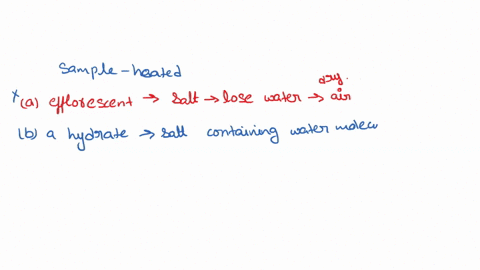 Sample - heated
dry.
x (a) efflorescent → salt → lose water → air
(b) a hydrate → salt containing water molecu